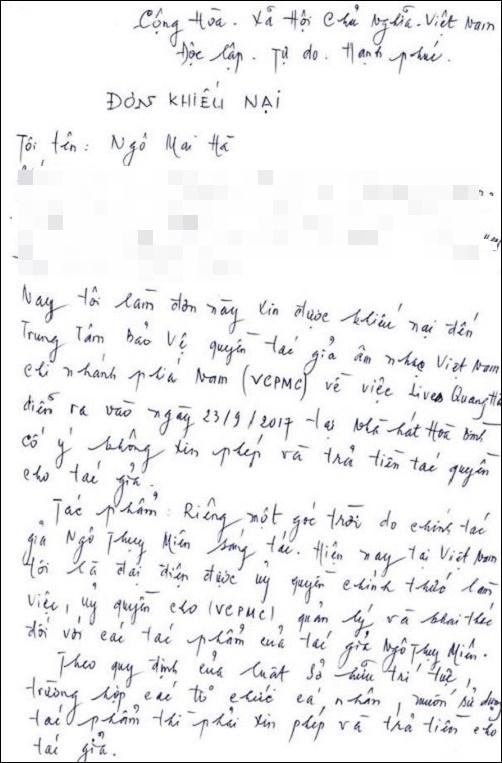 Cộng Hòa. Xã Hội Chủ Nghĩa. Việt Nam
Độc lập. Tự do. Hạnh phúc.
ĐƠN KHIẾU NẠI
Tôi tên: Ngô Mai Hà
Nay tôi làm đơn này xin được khiếu nại đến
Trung Tâm Bảo Vệ quyền tác giả âm nhạc Việt Nam
chi nhánh phía Nam (VCPMC) về việc Lives Quang Hà
diễn ra vào ngày 23/9/2017 tại Nhà hát Hòa Bình
cố ý không xin phép và trả tiền tác quyền
cho tác giả.
Tác phẩm: Riêng một góc trời do chính tác
giả Ngô Thụy Miên sáng tác. Hiện nay tại Việt Nam
tôi là đại diện được uỷ quyền chính thức làm
việc, uỷ quyền cho (VCPMC) quản lý và khai thác
đối với các tác phẩm của tác giả Ngô Thụy Miên.
Theo quy định của luật Sở hữu trí tuệ,
trường hợp các tổ chức cá nhân, muốn sử dụng
tác phẩm thì phải xin phép và trả tiền cho
tác giả.